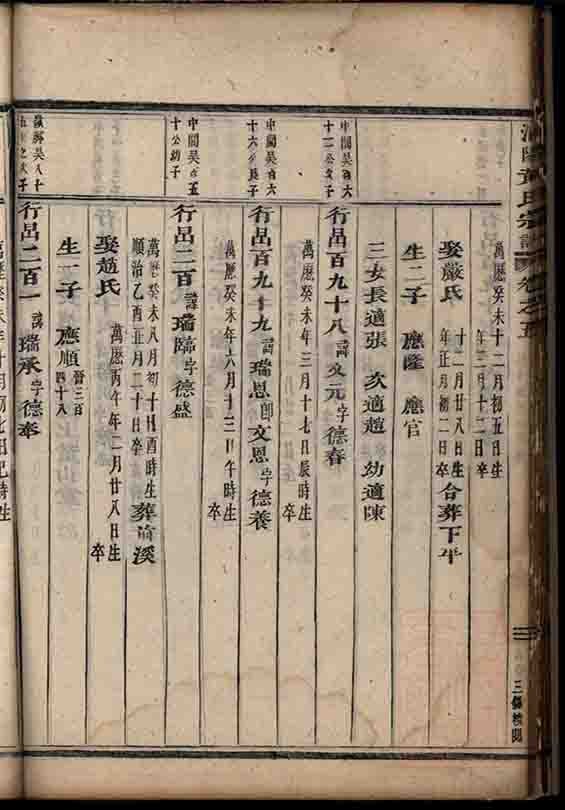 黃氏宗譜 卷之五
三
萬歷癸未十二月初五日生
年三月十二日卒
娶嚴氏 十二月廿八日生
年正月初二日卒 合葬下平
生二子 應隆 應官
三女長適張 次適趙 幼適陳
中關吳百六
十一公次子
行品百九十八 諱文元字德春
萬歷癸未年三月十七日辰時生
卒
中關吳百六
十六公長子
行品百九十九 諱瑞恩郎文恩字德養
萬歷癸未年六月十三日午時生
卒
中關吳百五
十公幼子
行品二百 諱瑞 字德盛
萬歷癸未八月初十日酉時生
順治乙酉正月二十日卒 葬 溪
娶趙氏 萬歷丙午年二月廿八日生
卒
生一子 應順 晉三百
四十八
吳八十
之次子
行品二百一 諱瑞承字德奉